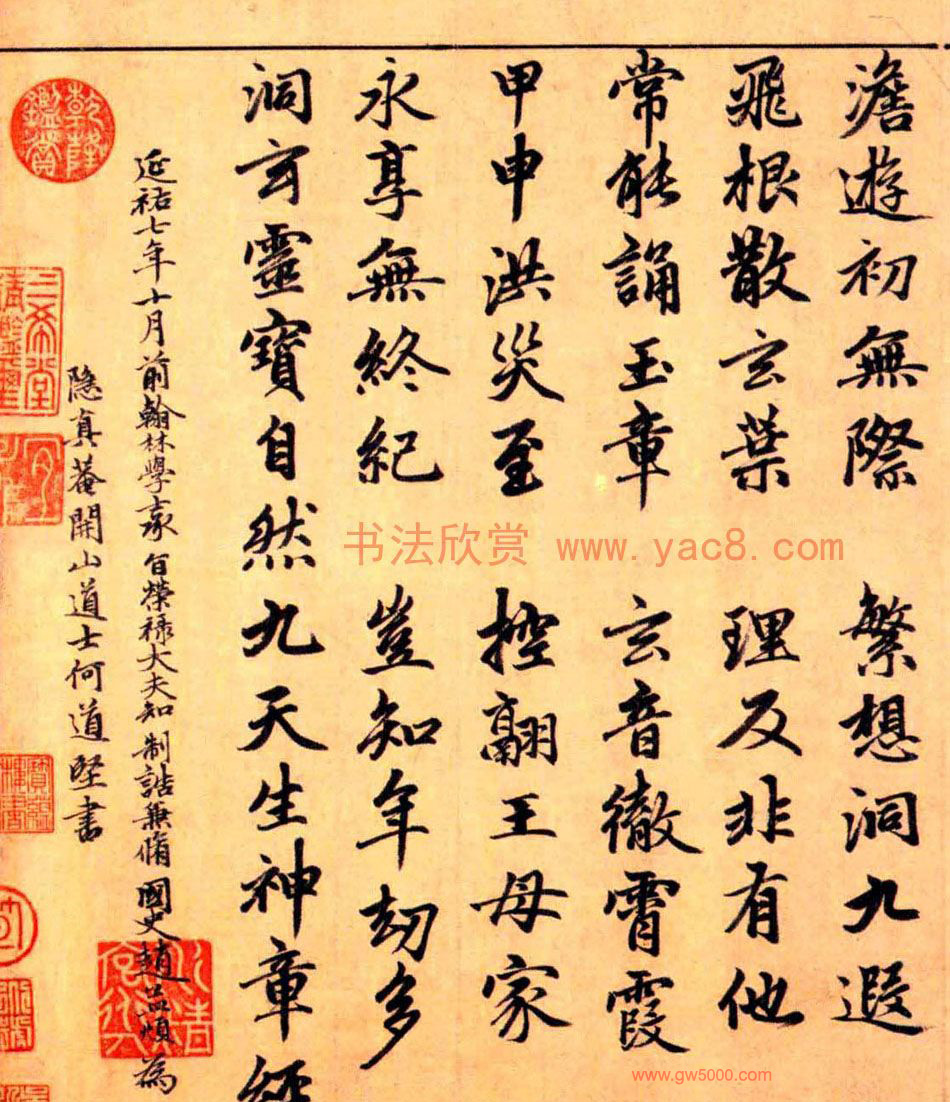 澹遊初無際 繁想洞九遐
飛根散玄葉 理反非有他
常能誦玉章 玄音徹霄霞
甲申洪災至 控翮王母家
永享無終紀 豈知年劫多
洞玄靈寶自然九天生神章經
延祐七年十月前翰林學承旨榮祿大夫知制誥兼脩國史趙孟頫為
隐真菴開山道士何道堅書
乾隆鑑賞
三希堂精鑒璽
书法欣赏 www.yac8.com
www.gw5000.com